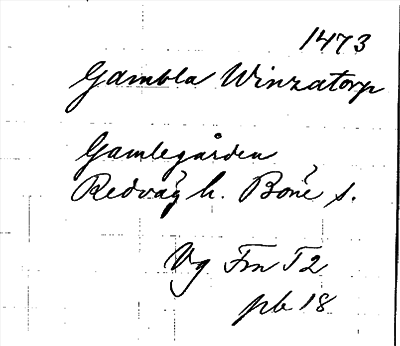 1473
Gambla Winzatorp
Gamlegården
Redväg h. Böne s.
Vg Frn I2
pb 18